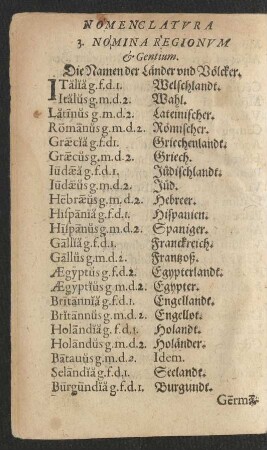 NOMENCLATVRA
3. NOMINA REGIONVM
& Gentium.
Die Namen der Länder vnd Völcker.
ITălĭă g.f.d.1. Welschlandt.
Itălŭs g.m.d.2. Wahl.
Lătīnŭs g.m.d.2. Lateinischer.
Rōmānŭs g.m.d.2. Römischer.
Græcĭă g.f.d.1. Griechenlandt.
Græcŭs g.m.d.2. Griech.
Iūdæă g.f.d.1. Jüdischlandt.
Iūdæŭs g.m.d.2. Jüd.
Hĕbræŭs g.m.d.2. Hebreer.
Hīspānĭă g.f.d.1. Hispanien.
Hīspānŭs g.m.d.2. Spaniger.
Gāllĭă g.f.d.1. Franckreich.
Gāllŭs g.m.d.2. Frantzoß.
Ægyptŭs g.f.d.2. Egypterlandt.
Ægyptĭŭs g.m.d.2. Egypter.
Brĭtānnĭă g.f.d.1. Engellandt.
Brĭtānnŭs g.m.d.2. Engellot.
Holāndĭă g.f.d.1. Holandt.
Holāndŭs g.m.d.2. Holånder.
Bătauŭs g.m.d.2. Idem.
Selāndĭă g.f.d.1. Seelandt.
Būrgūndĭă g.f.d.1. Burgundt.
Gērmă-